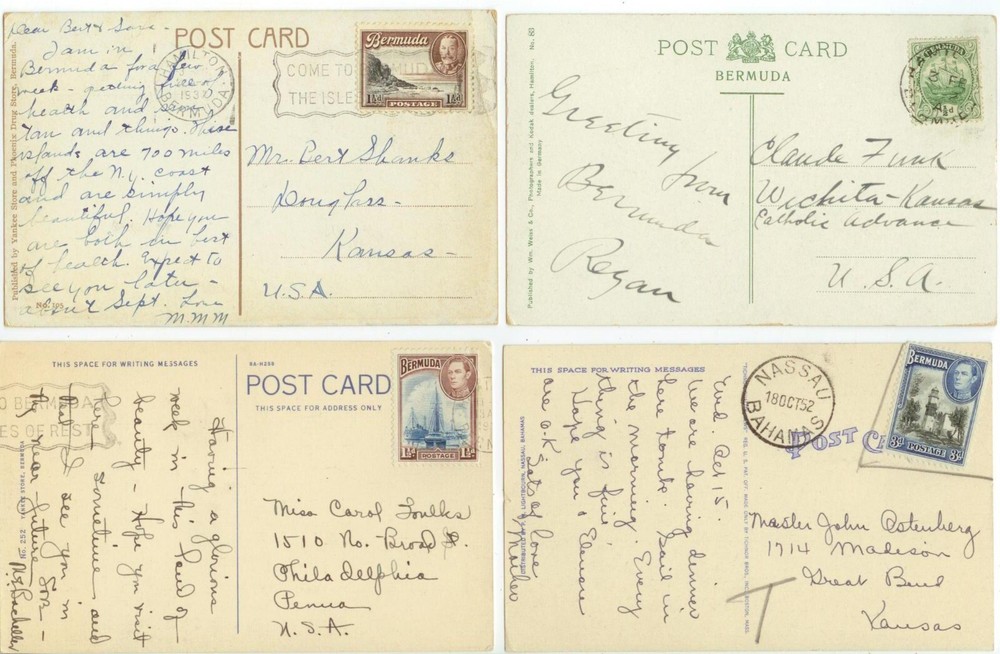 Dear Bert & Sara -
I am in
Bermuda for a few
week - getting full of
health and sun
tan and things. These
islands are 700 miles
off the N.Y. coast
and are simply
beautiful. Hope you
are both in best
of health. Expect to
see you later -
about Sept. Love
M.M.M
POST CARD
HAMILTON
BERMUDA
COME TO BERMUD
THE ISLE
Bermuda
1½d
POSTAGE
1½d
Mr. Bert Shanks
Douglass -
Kansas -
U.S.A.
Published by Yankee Store and Phoenix Drug Store, Bermuda.
No. 105
POST CARD
BERMUDA
No. 80
BERMUDA
½d
Greeting from
Bermuda
Regan
Claude Funk
Wichita - Kansas
Catholic Advance
U.S.A.
Published by Wm. Weiss & Co., Photographers and Kodak dealers, Hamilton.
Made in Germany
THIS SPACE FOR WRITING MESSAGES
POST CARD
THIS SPACE FOR ADDRESS ONLY
O BERMUDA
ES OF REST
BERMUDA
1½d
POSTAGE
1½d
Having a glorious
week in this land of
beauty - Hope you visit
here sometime and
that I see you in
the near future
Miss Carol Foulks
1510 No. Broad St.
Philadelphia
Penna
U.S.A.
No. 252
YANKEE STORE, BERMUDA
THIS SPACE FOR WRITING MESSAGES
NASSAU
18 OCT 52
BAHAMAS
POST C
BERMUDA
3d
POSTAGE
3d
Wed. Oct 15.
We are having dinner
here tonite. Sail in
the morning. Every
thing is fine.
Hope you & Eleanor
are O.K.
Lots of love
Master John Ostenberg
1714 Madison
Great Bend
Kansas
T